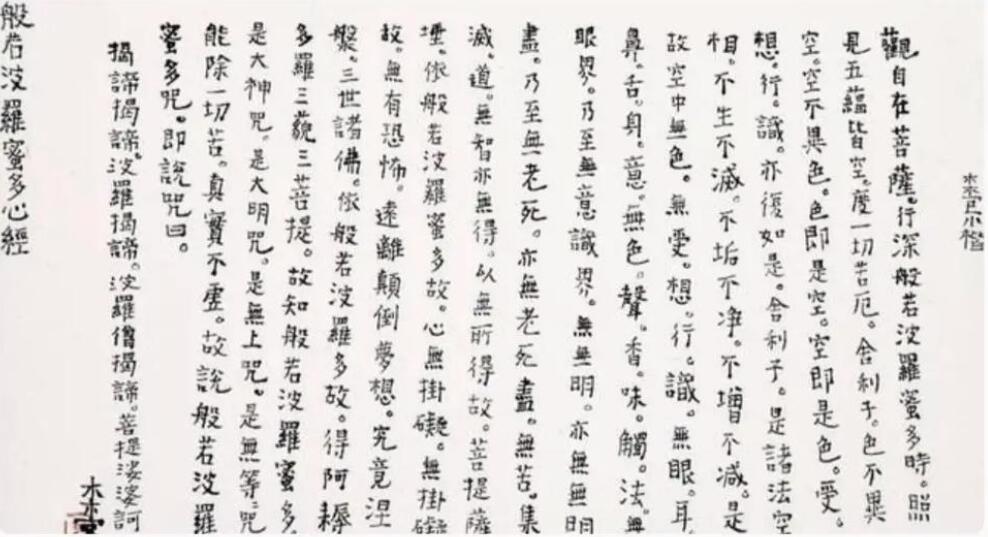 小楷
觀自在菩薩。行深般若波羅蜜多時。照
見五蘊皆空。度一切苦厄。舍利子。色不異
空。空不異色。色即是空。空即是色。受。
想。行。識。亦復如是。舍利子。是諸法空
相。不生不滅。不垢不净。不增不減。是
故空中無色。無受。想。行。識。無眼。耳
鼻。舌。身。意。無色。聲。香。味。觸。法。無
眼界。乃至無意識界。無無明。亦無無明
盡。乃至無老死。亦無老死盡。無苦。集
滅。道。無智亦無得。以無所得故。菩提薩
埵。依般若波羅蜜多故。心無掛礙。無掛礙
故。無有恐怖。遠離顛倒夢想。究竟涅
槃。三世諸佛。依般若波羅多故。得阿耨
多羅三藐三菩提。故知般若波羅蜜多
是大神咒。是大明咒。是無上咒。是無等。咒
能除一切苦。真實不虛。故說般若波羅
蜜多咒。即說咒曰。
揭諦揭諦。波羅揭諦。波羅僧揭諦。菩提娑婆訶
般若波羅蜜多心經